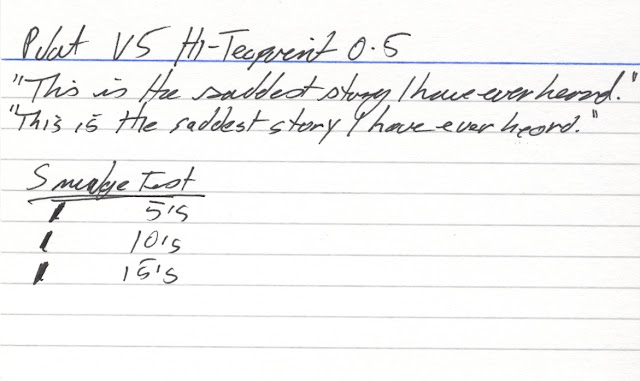 Pilot V5 Hi-Tecpoint 0.5
"This is the saddest story I have ever heard."
"This is the saddest story I have ever heard."
Smudge Test
5's
10's
15's